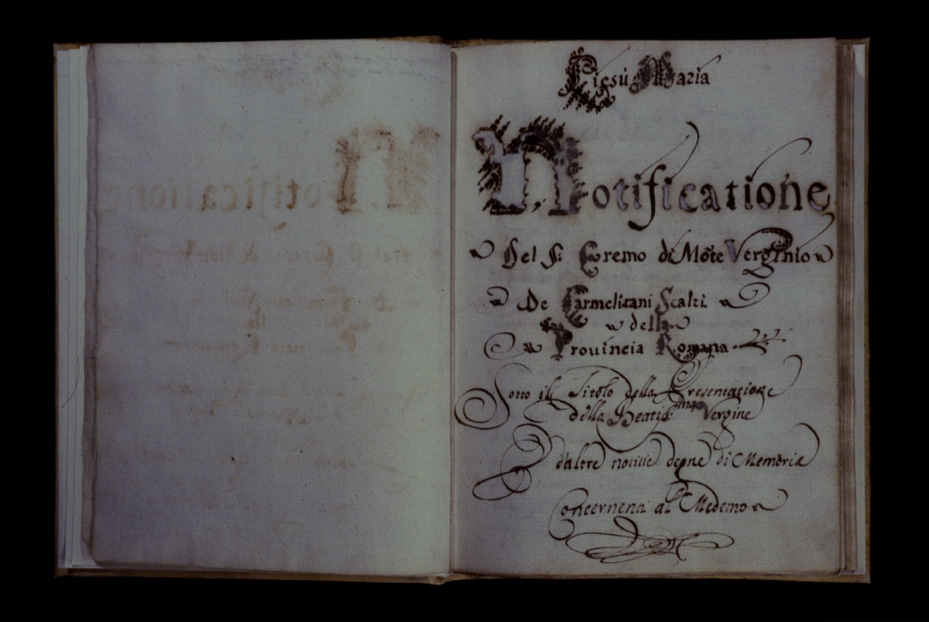 Giesù Maria
Notificatione
Del S: Eremo di Mõte Verginio
De Carmelitani Scalzi
della
Prouincia Romana
Sotto il Titolo della Presentatione
della Beatiss:ma Vergine
d'altre notitie degne di Memoria
Concernenti al Medemo